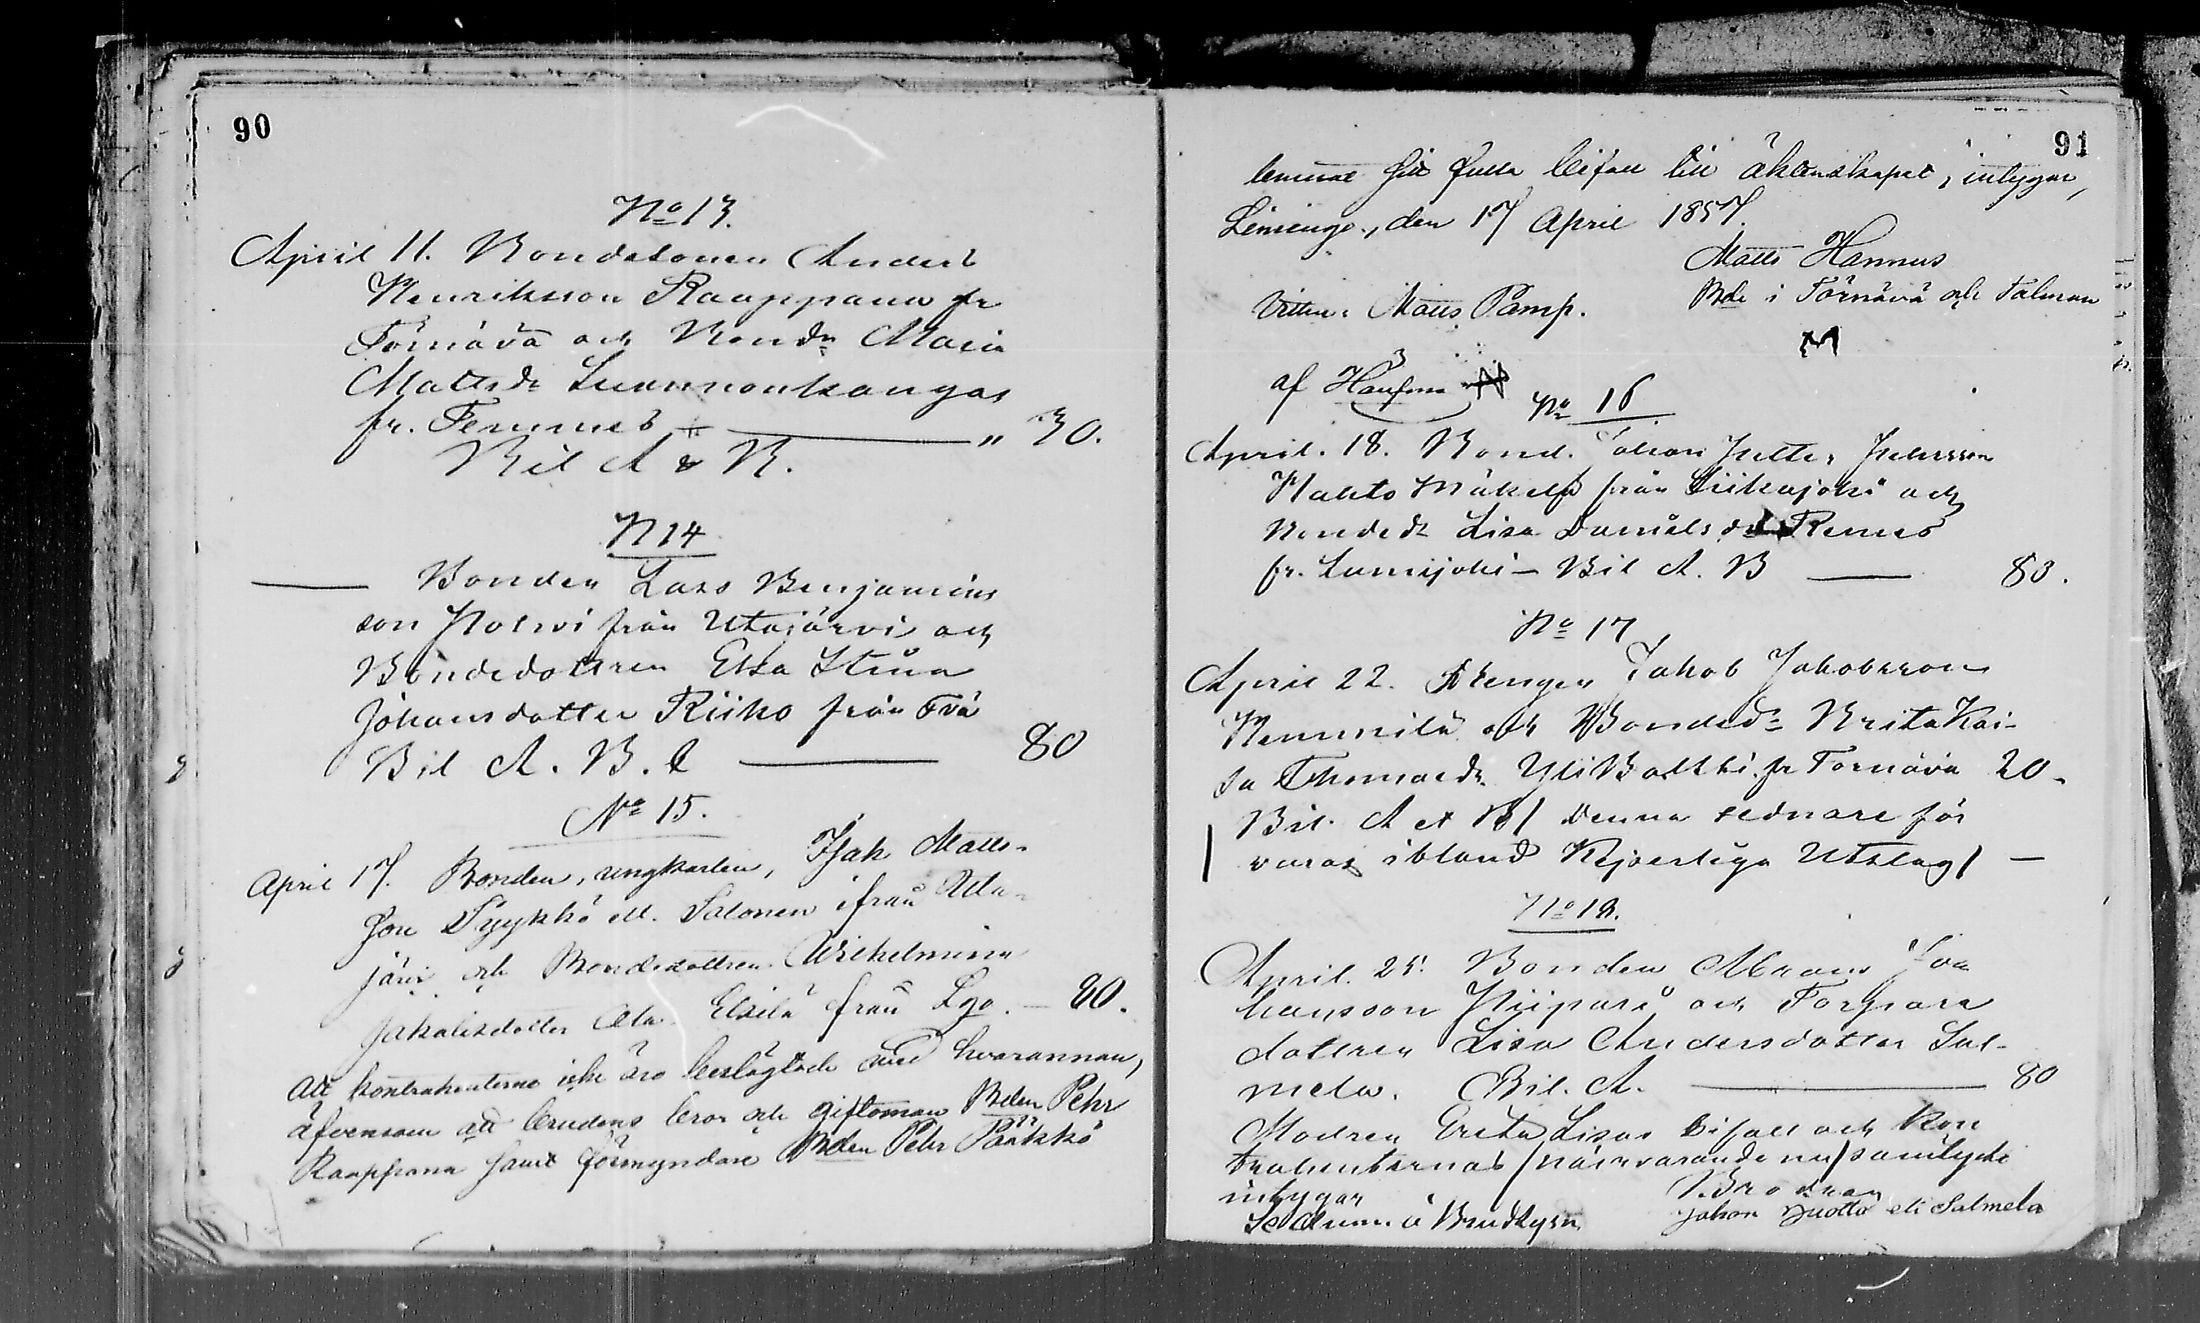 90
No 13.
April 11. Bondesonen Anders
Henriksson Raappana fr
Törnävä och Bondr Maria
Mattsdr
fr. Temmes " 30.
Bil A & B.
N 14
Bonden Lars Benjamins
son från Utajärvi och
Bondedottren Elsa Stina
Johansdotter Riiko från
Bil A. B. C 80
No 15.
April 17. Bonden, ungkarlen, Isak Matts-
son Tyykkö ell. Salonen ifrån Uta-
järvi och Bondedottren Wilhelmina
Jakobsdotter Ala Elsilä från Lgo. — 80.
Att kontrahenterne icke äro beslägtade med hvarannan,
äfvensom att brudens bror och giftoman Bden Pehr
Raappana samt förmyndare Bden Pehr Pääkkö
91
lemnat sitt fulla bifall till äktenskapet, intygar,
Limingo, den 17 April 1857.
Matts Hannus
Bde i Törnävä och Talman
Vittne: Matts Pamp.
af
No 16
April. 18. Bond. Johan Petter Petersson
Mäkelä från Siikajoki och
Bondedr Lisa Danielsdr Remes
fr. Lumijoki — Bil A. B 80.
No 17
April 22. Drengen Jakob Jakobsson
och Bondedr Brita Kai-
sa Thomasdr Fr Tornävä 20.
Bil. A et B/ denna sednare för
varas ibland Kejserliga Utslag/ —
No 18.
April. 25. Bonden Joa
hansson Piipari och Torpare
dottren Lisa Andersdotter Sal-
mela. Bil. A. 80
Modren Greta Lisas bifall och Kon
trahenternas (närvarande nu) samtycke
intygar Brodren
Johan eli Salmela